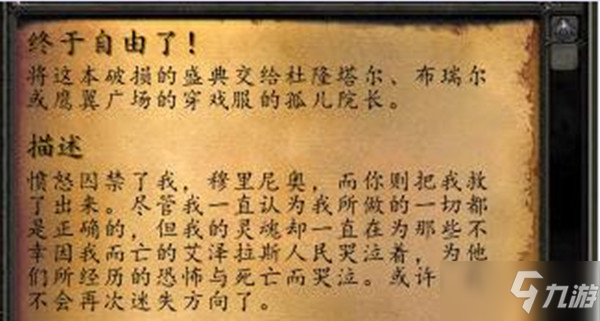 终于自由了！
将这本破损的盛典交给杜隆塔尔、布瑞尔
或鹰翼广场的穿戏服的孤儿院长。
描述
愤怒囚禁了我，穆里尼奥，而你则把我救
了出来。尽管我一直认为我所做的一切都
是正确的，但我的灵魂却一直在为那些不
幸因我而亡的艾泽拉斯人民哭泣着，为他
们所经历的恐怖与死亡而哭泣。或许
不会再次迷失方向了。
九游